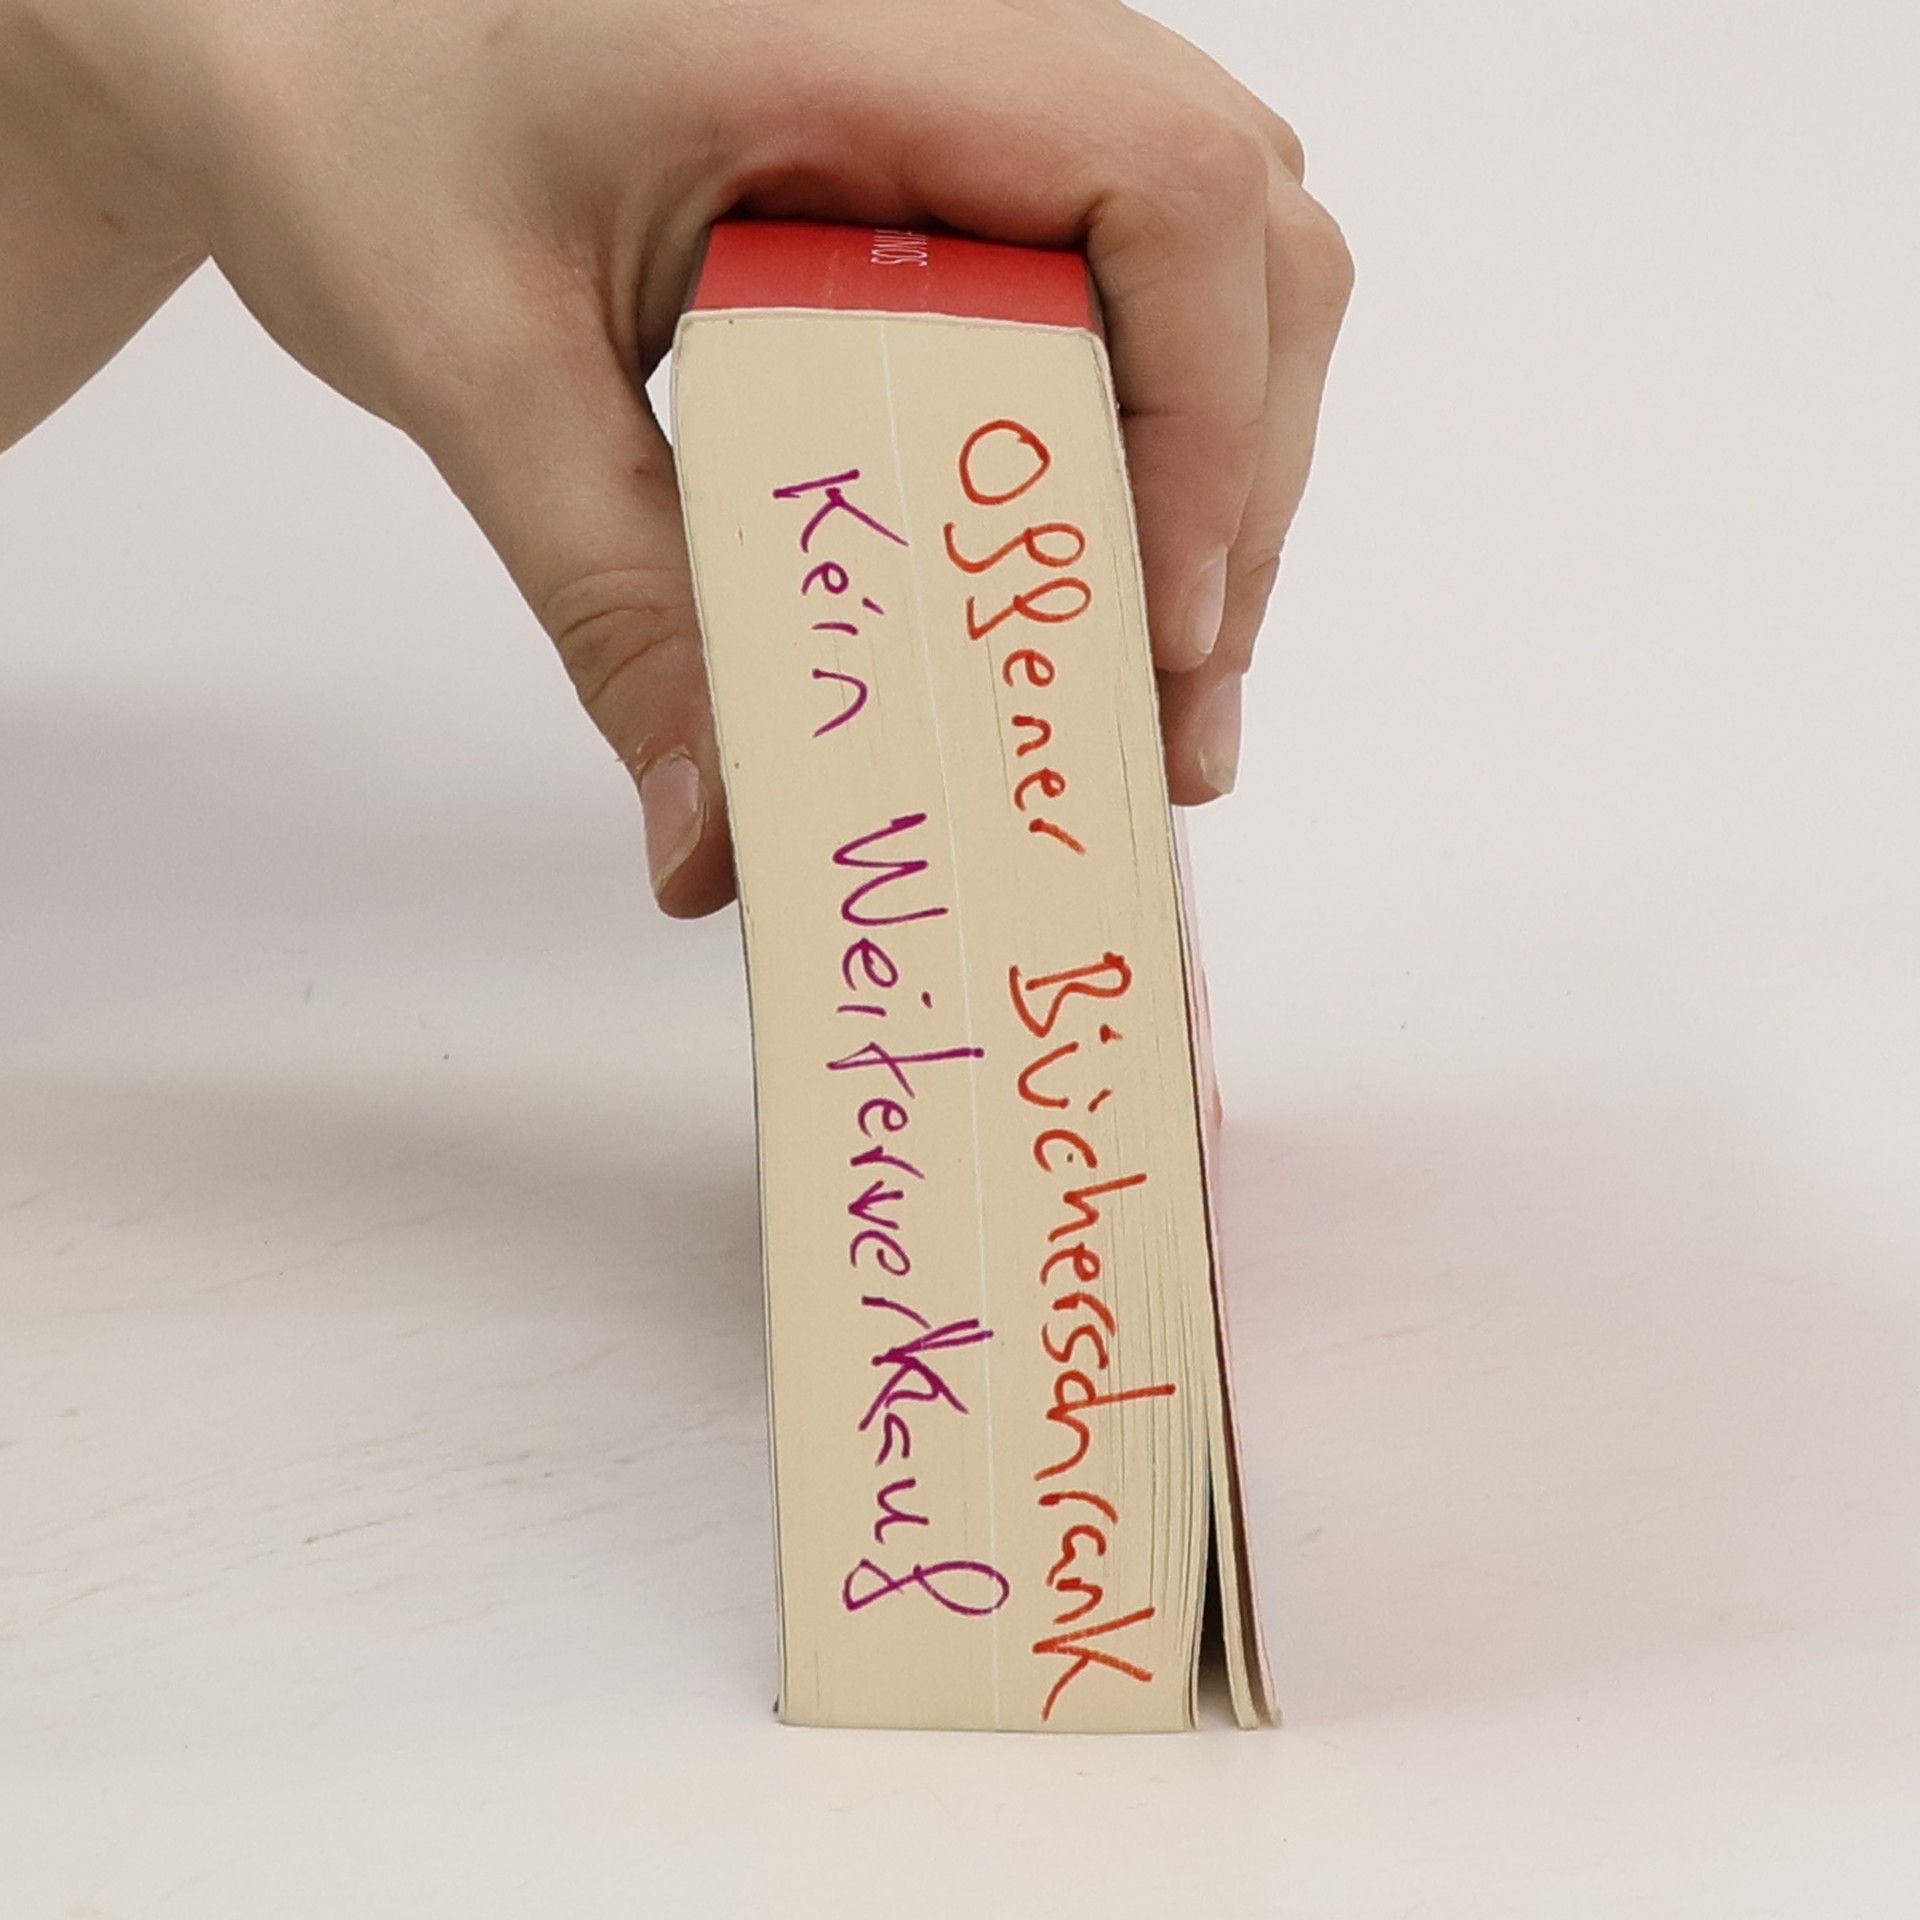 Offener Bücherschrank
Kein Weiterverkauf